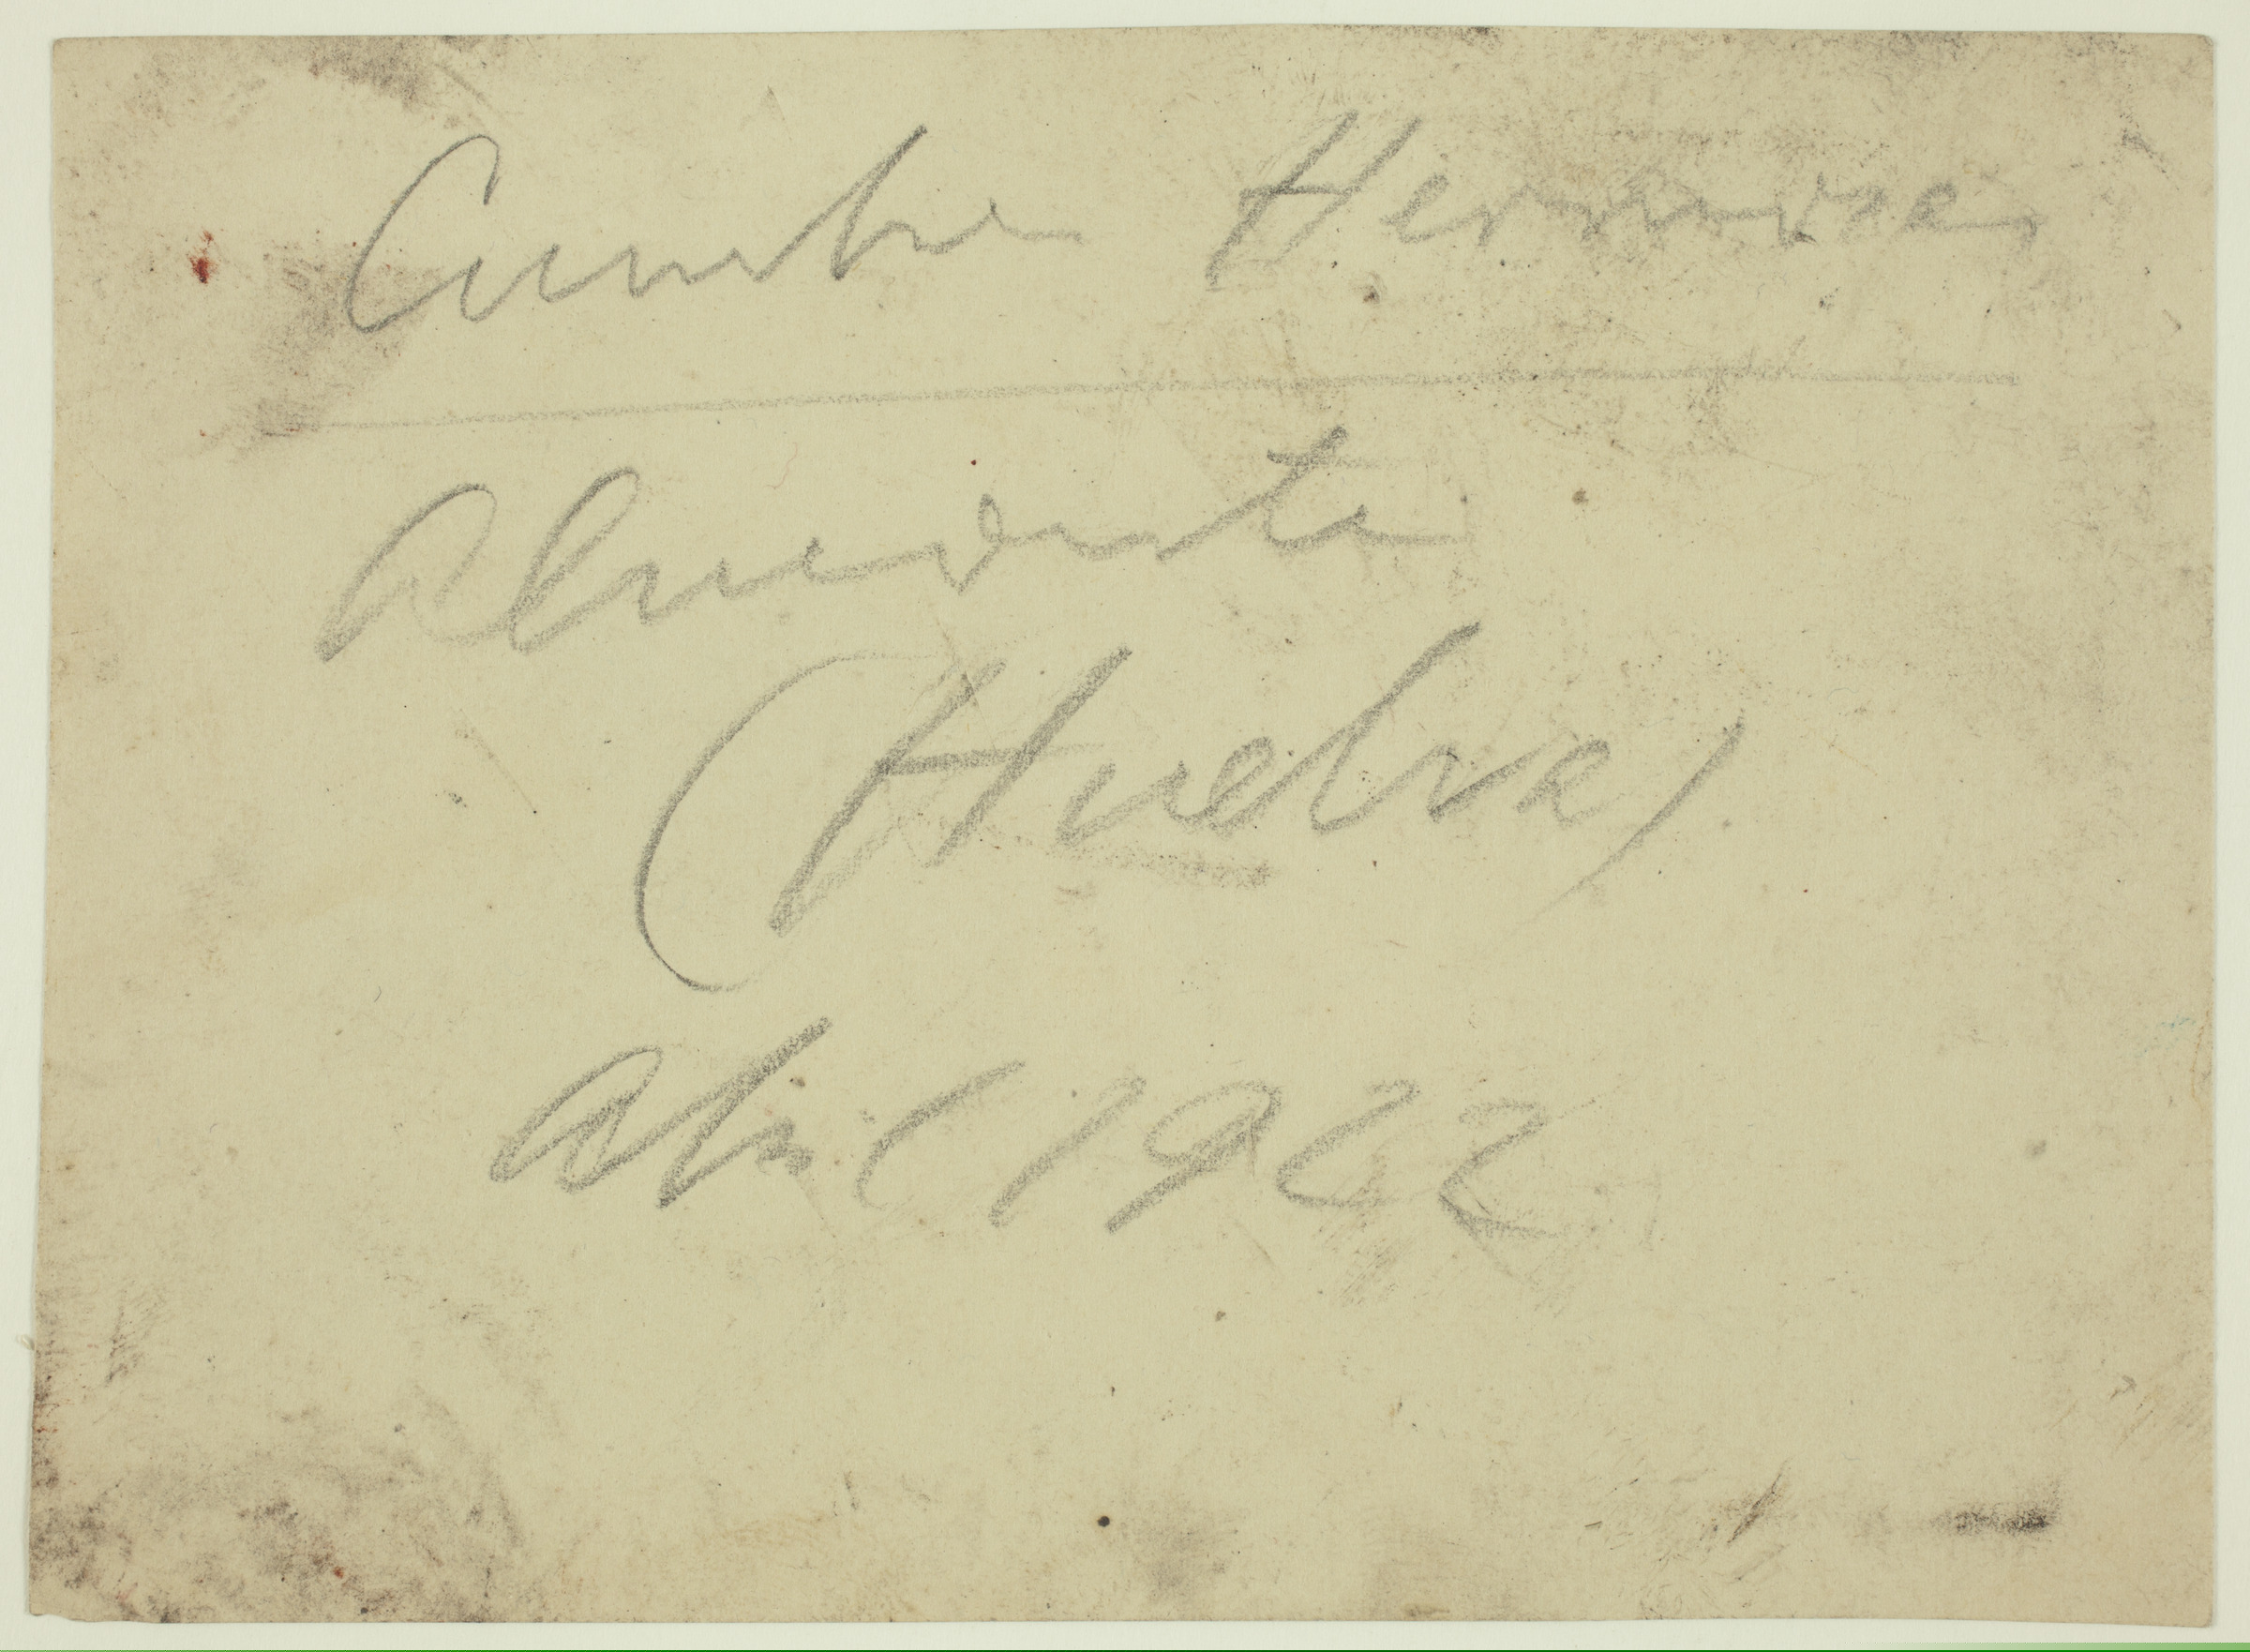 Cumbre Herrera
Almonte
(Huelva)
Abril 1922